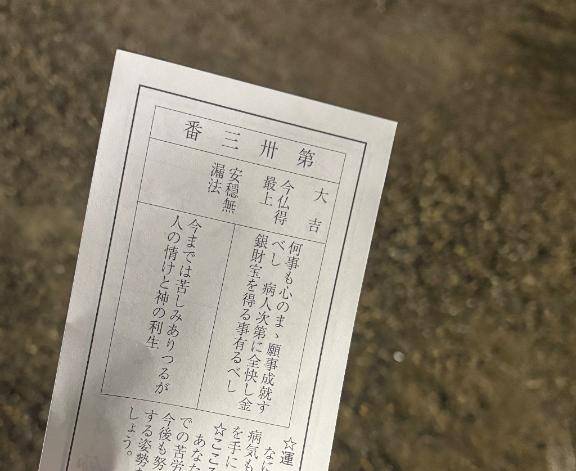 第卅三番
大吉
今仏得
最上
安穏無
漏法
何事も心のまゝ願事成就す
べし　病人次第に全快し金
銀財宝を得る事有るべし
今までは苦しみありつるが
人の情けと神の利生
☆運
なに
病気も
を手に
☆こころ
あなた
での苦労
今後も努
する姿勢
しょう。